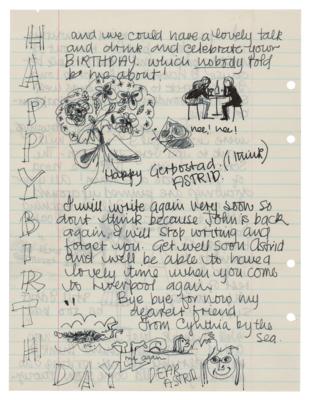 HAPPY BIRTHDAY
and we could have a lovely talk
and drink and celebrate your
BIRTHDAY. which nobody told
me about!
nee! nee!
Happy Gerbostad. (I think)
ASTRID.
I will write again very soon so
dont think because John is back
again I will stop writing and
forget you. Get well soon Astrid
and we'll be able to have a
lovely time when you come
to Liverpool again.
Bye bye for now my
dearest friend
from Cynthia by the
sea.
me again
DEAR
ASTRID